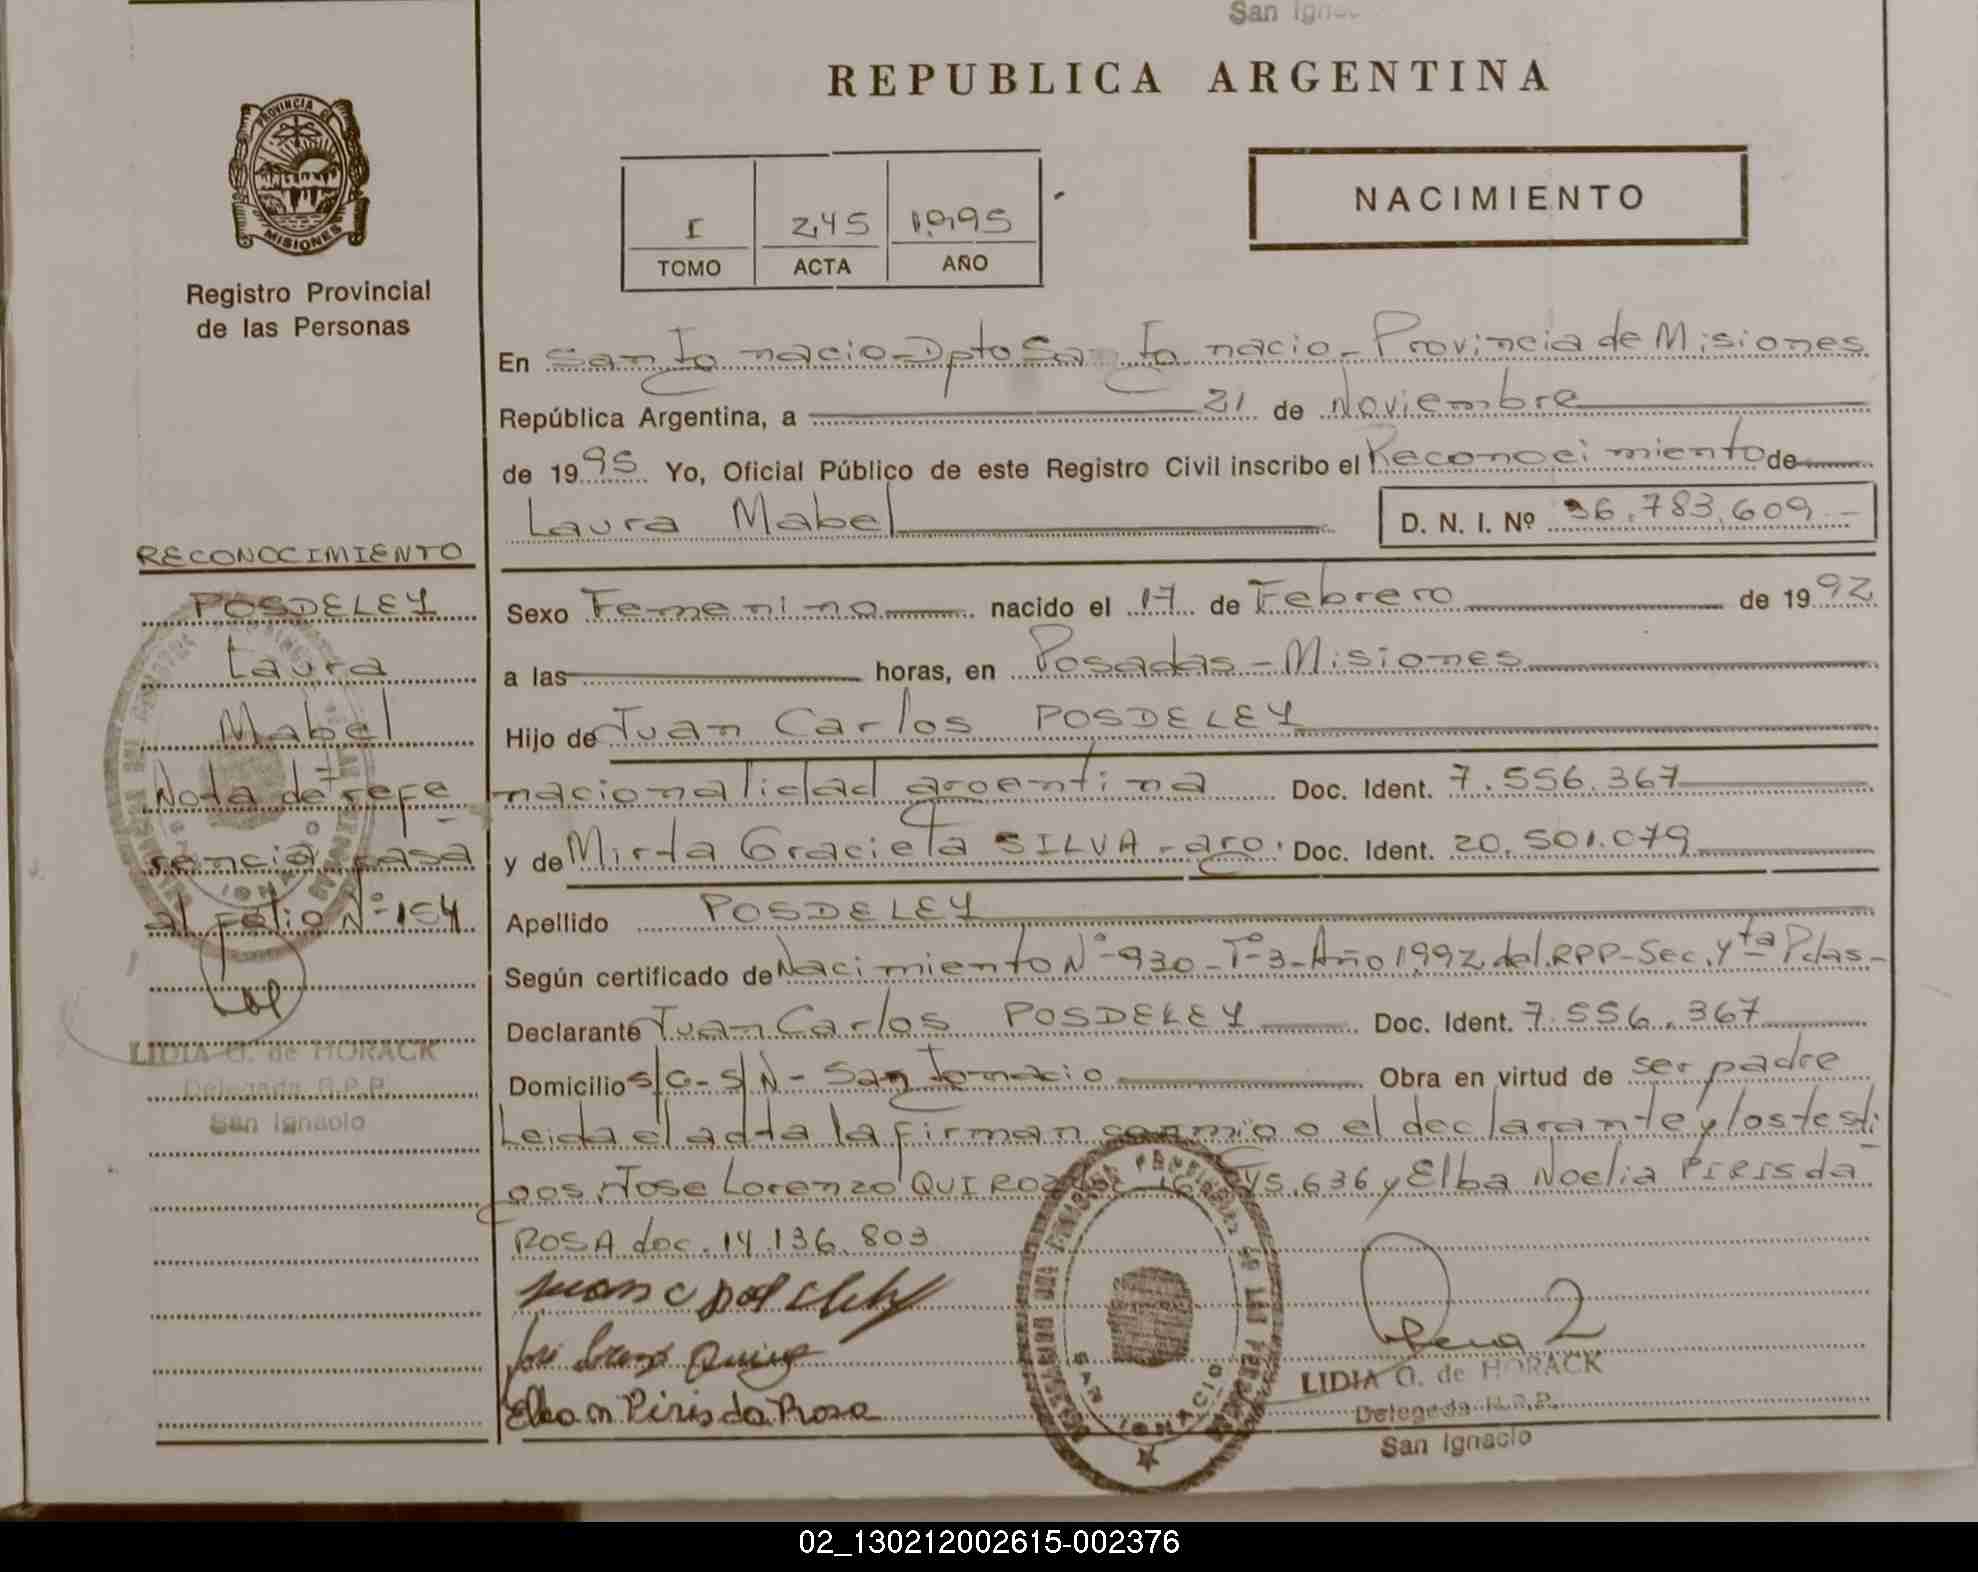 San Igna
REPUBLICA ARGENTINA
PROVINCIA DE
MISIONES
Registro Provincial
de las Personas
I 245 1995
TOMO ACTA AÑO
NACIMIENTO
En San Ignacio - Dpto San Ignacio - Provincia de Misiones
República Argentina, a 21 de Noviembre
de 1995 Yo, Oficial Público de este Registro Civil inscribo el Reconocimiento de
Laura Mabel
D. N. I. Nº 36.783.609.-
RECONOCIMIENTO
POSDELEY
Laura
Mabel
Nota de refe
rencia pasa
al folio Nº 154
LIDIA O. de HORACK
Delegada R.P.P.
San Ignacio
Sexo Femenino nacido el 17 de Febrero de 1992
a las horas, en Posadas - Misiones
Hijo de Juan Carlos POSDELEY
nacionalidad argentina Doc. Ident. 7.556.367
y de Mirta Graciela SILVA - arg. Doc. Ident. 20.501.079
Apellido POSDELEY
Según certificado de Nacimiento Nº 930 - Tº 3 - Año 1992 del RPP - Sec. 4ta Pdas -
Declarante Juan Carlos POSDELEY Doc. Ident. 7.556.367
Domicilio s/c - s/N - San Ignacio Obra en virtud de ser padre
Leida el acta la firman conmigo el declarante y los testi
gos, Jose Lorenzo QUIROZ 636 y Elba Noelia PIRIS da
ROSA doc. 14.136.803
Elba n Piris da Rosa
SAN IGNACIO
LIDIA O. de HORACK
Delegada R.P.P.
San Ignacio
02_130212002615-002376